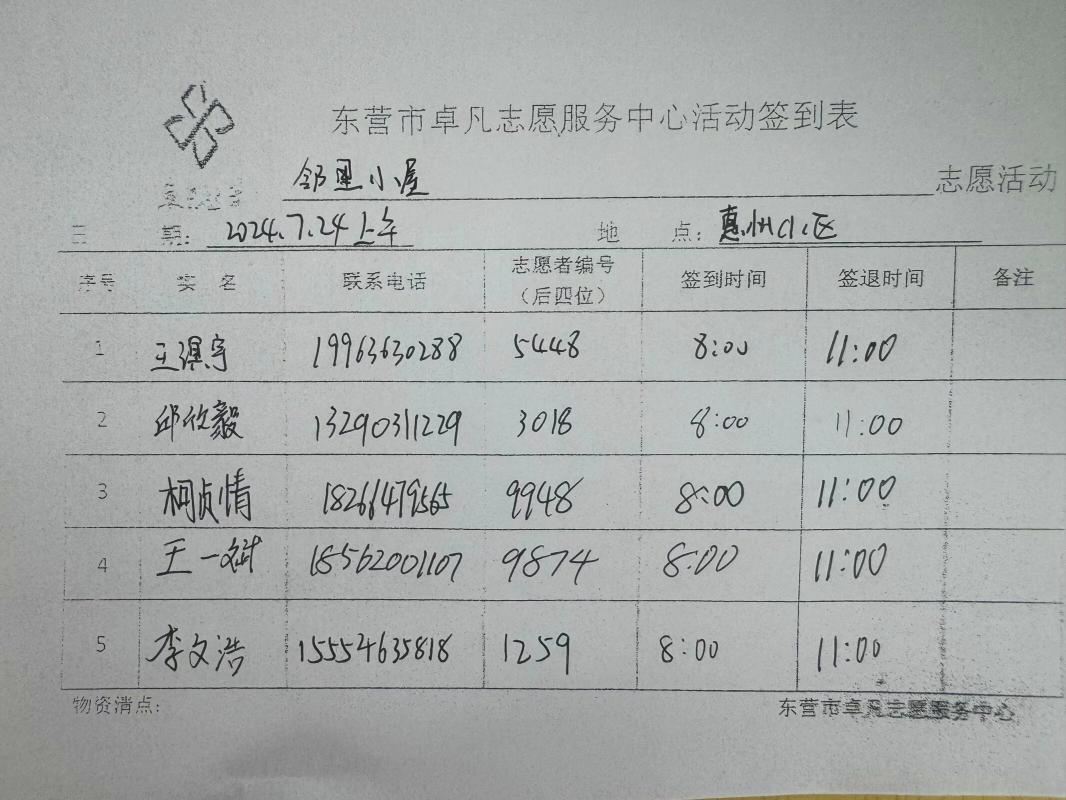 东营市卓凡志愿服务中心活动签到表
邻里小屋 志愿活动
日 期: 2024.7.24上午 地 点: 惠州小区
序号 姓 名 联系电话 志愿者编号(后四位) 签到时间 签退时间 备注
1 王淏宇 19963630288 5448 8:00 11:00
2 邱欣毅 13290311229 3018 8:00 11:00
3 柯贞情 18266479565 9948 8:00 11:00
4 王一斌 18562001107 9874 8:00 11:00
5 李文浩 15554635818 1259 8:00 11:00
物资清点: 东营市卓凡志愿服务中心